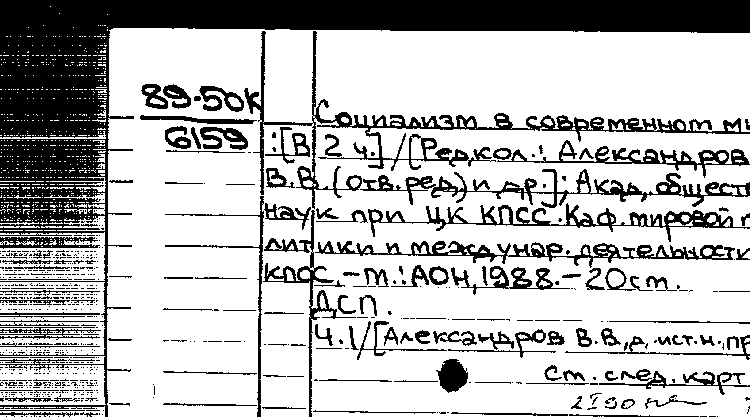 89-50К
6159
Социализм в современном ми
:[В 2 ч.]/[Ред.кол.: Александров
В.В.(отв.ред.) и др.]; Акад. обществ
наук при ЦК КПСС. Каф. мировой п
литики и междунар. деятельности
КПСС.-М.:АОН,1988.-20см.
ДСП.
Ч.1/[Александров В.В.,д.ист.н.,пр
См. след. карт